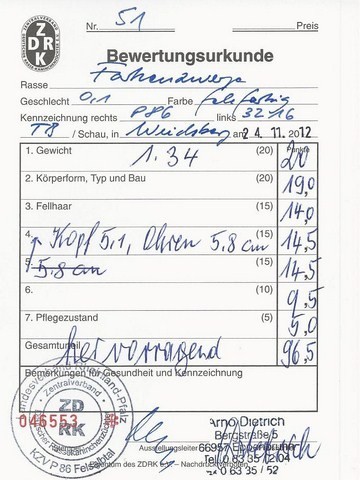 Nr. 51 Preis
ZDRK
Bewertungsurkunde
Rasse Farbenzwerge
Geschlecht 0,1 Farbe
Kennzeichnung rechts P86 links 32-16
T8 / Schau, in am 24. 11. 2012
Punkte
1. Gewicht 1.34 (20) 20
2. Körperform, Typ und Bau (20) 19,0
3. Fellhaar (15) 14,0
4. Kopf 5,1, Ohren 5,8 cm (15) 14,5
5. 5,8 cm (15) 14,5
6. (10) 9,5
7. Pflegezustand (5) 5,0
Gesamturteil Hervorragend 96,5
Bemerkungen für Gesundheit und Kennzeichnung
Zentralverband
ZD
RK
046553
KZV P 86 Felsalbtal
Arno Dietrich
Bergstraße 5
Ausstellungsleiter 66957 Eppenbrunn
Tel. 0 63 35 / 21 04
0 63 35 / 52
Eigentum des ZDRK e.V. – Nachdruck verboten